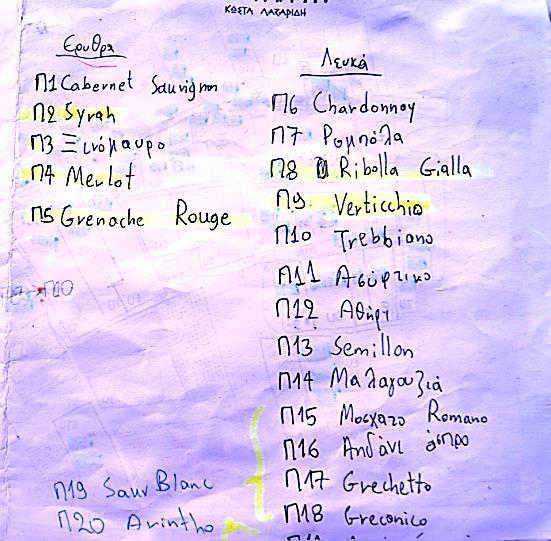 ΚΩΣΤΑ ΛΑΖΑΡΙΔΗ
Ερυθρα
Π1 Cabernet Sauvignon
Π2 Syrah
Π3 Ξινόμαυρο
Π4 Merlot
Π5 Grenache Rouge
Π19 Sauv Blanc
Π20 Arintho
Λευκά
Π6 Chardonnay
Π7 Ρομπόλα
Π8 Ribolla Gialla
Π9 Verticchio
Π10 Trebbiano
Π11 Ασύρτικο
Π12 Αθήρι
Π13 Semillon
Π14 Μαλαγουζιά
Π15 Μοσχατο Romano
Π16 Αηδάνι άσπρο
Π17 Grechetto
Π18 Greconico